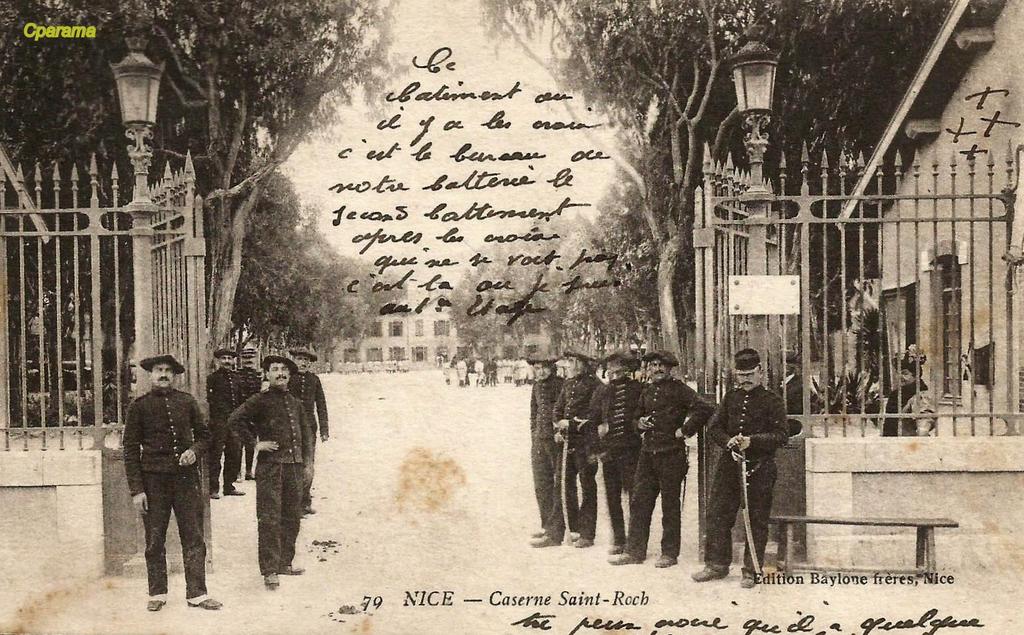 Cparama
Ce
batiment ou
il y a les croix
c'est le bureau de
notre batterie le
second battiment
apres les croix
qui ne se voit pas
c'est la ou je suis
au 1er Etage
Edition Baylone frères, Nice
79 NICE — Caserne Saint-Roch
tu peux croire qu'il a quelque